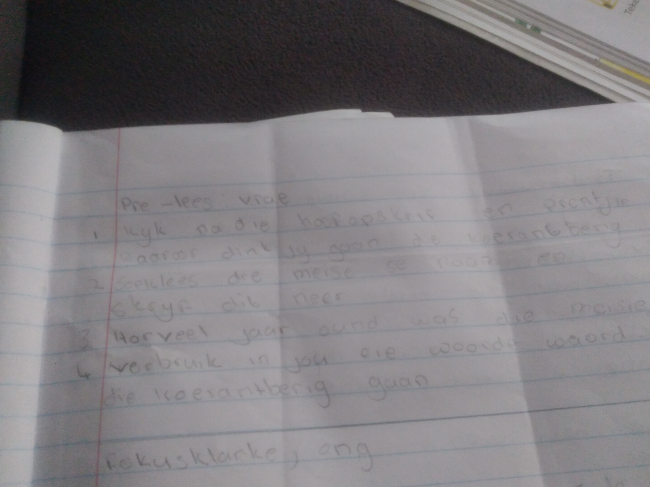 Pre-lees vrae
1 Kyk na die hoofopskrif en prentjie
waaroor dink jy gaan de koerantberig
2 Soeklees die meise se naam en
skryf dit neer
3 Hoeveel jaar ound was die meisie
4 verbruik in jou eie woorde waaroor
die koerantberig guan
Fokusklanke, ang